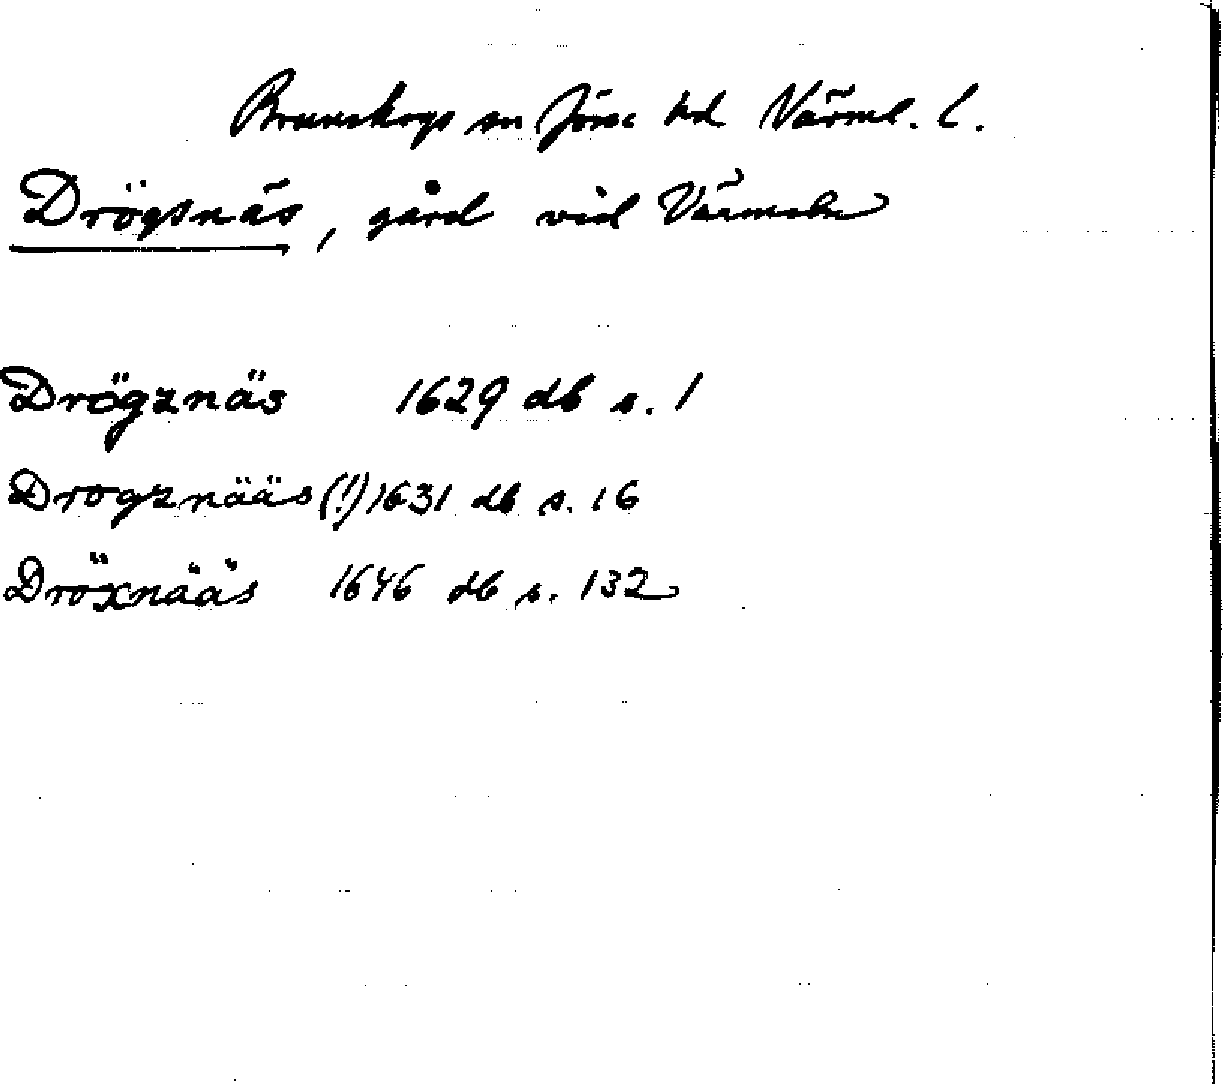 Brunskogs sn Jösse hd Värml. l.
Drögsnäs, gård vid Värmeln
Drögznäs 1629 db s. 1
Drogznääs (!) 1631 db s. 16
Dröxnääs 1646 db s. 132